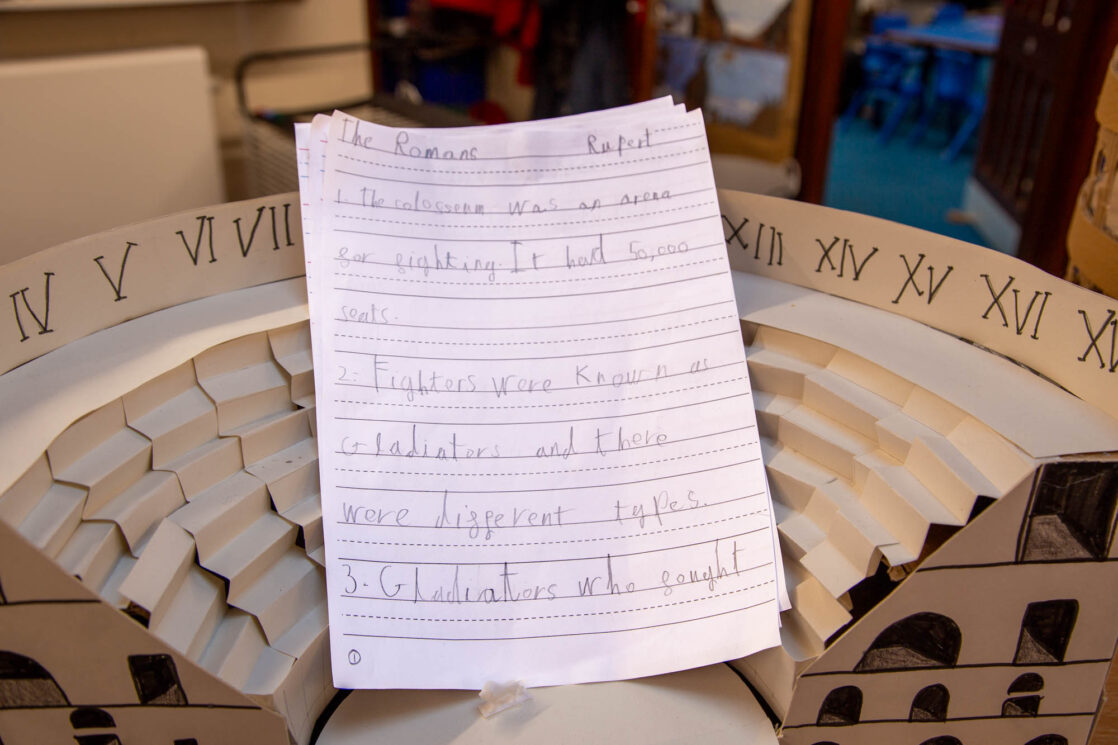 The Romans Rupert
1. The colosseum was an arena
for fighting. It had 50,000
seats.
2. Fighters were known as
Gladiators and there
were different types.
3. Gladiators who fought
①
IV V VI VII
XIII XIV XV XVI